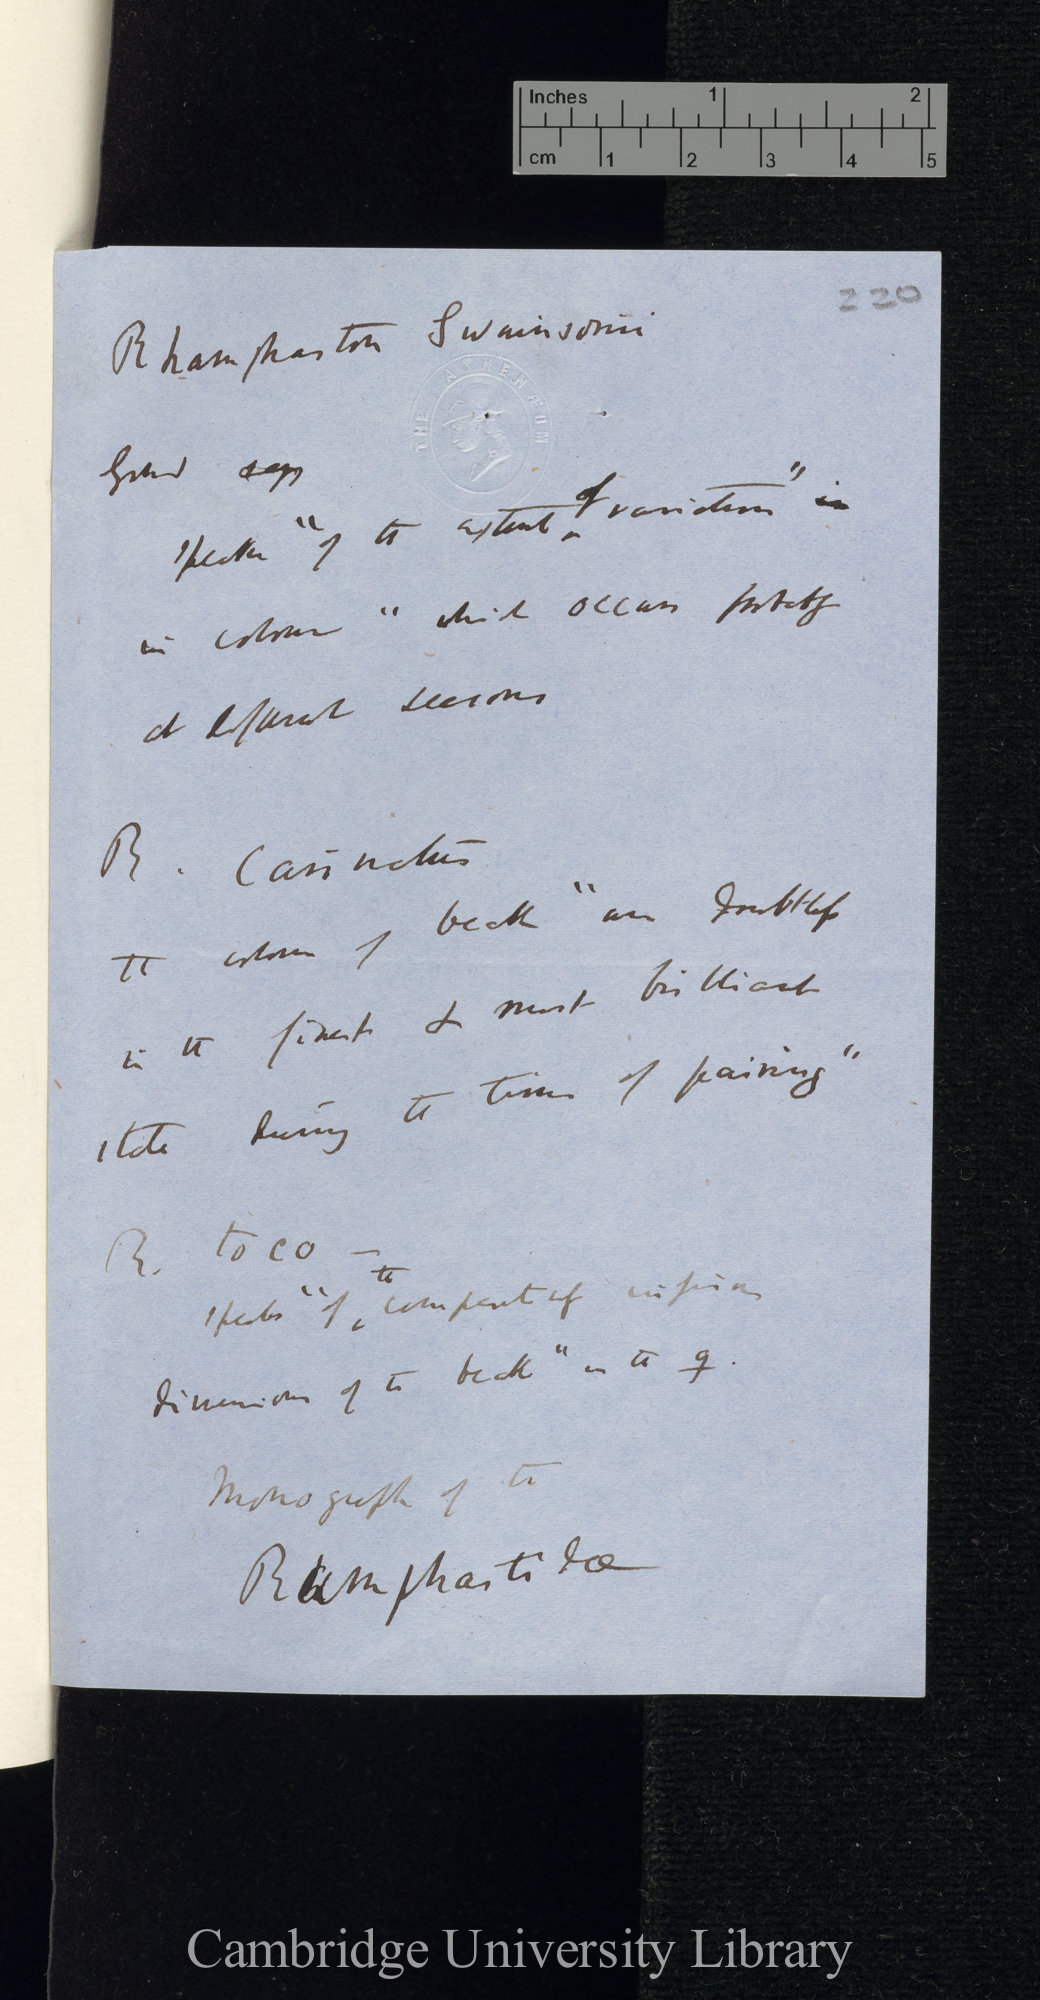 Inches 1 2
cm 1 2 3 4 5
220
Rhamphastos Swainsonii
THE ATHENÆUM
Gould says
speaks "of the extent of variation" in
in colour " which occurs probably
at different seasons
R. Carinatus
the colour of beak "are doubtless
in the finest & most brilliant
state during the time of pairing"
R. toco —
speaks "of the comparatively inferior
dimensions of the beak" in the ♀.
Monograph of the
Ramphastidæ
Cambridge University Library